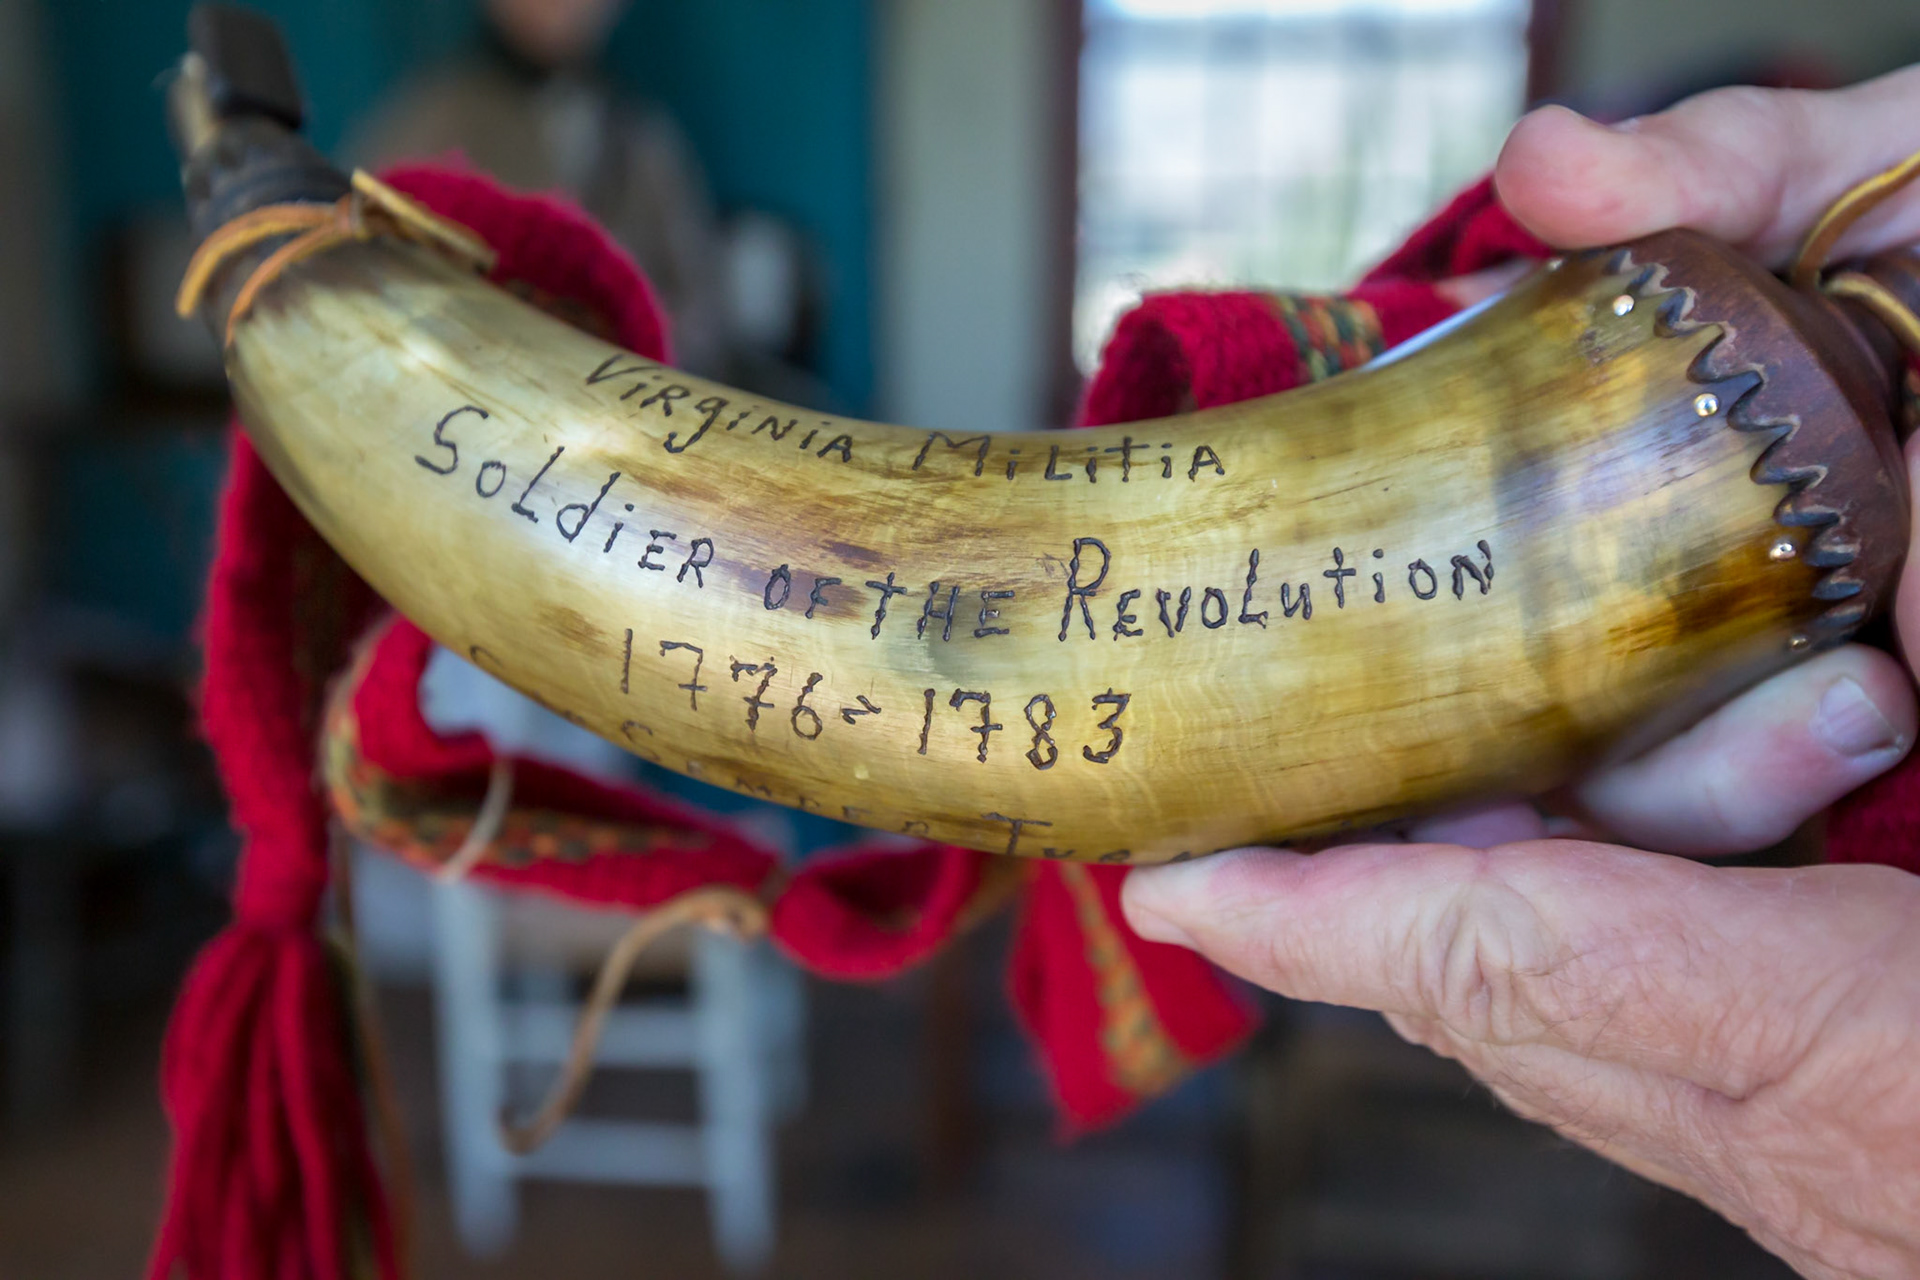 Virginia Militia
Soldier of the Revolution
1776~1783